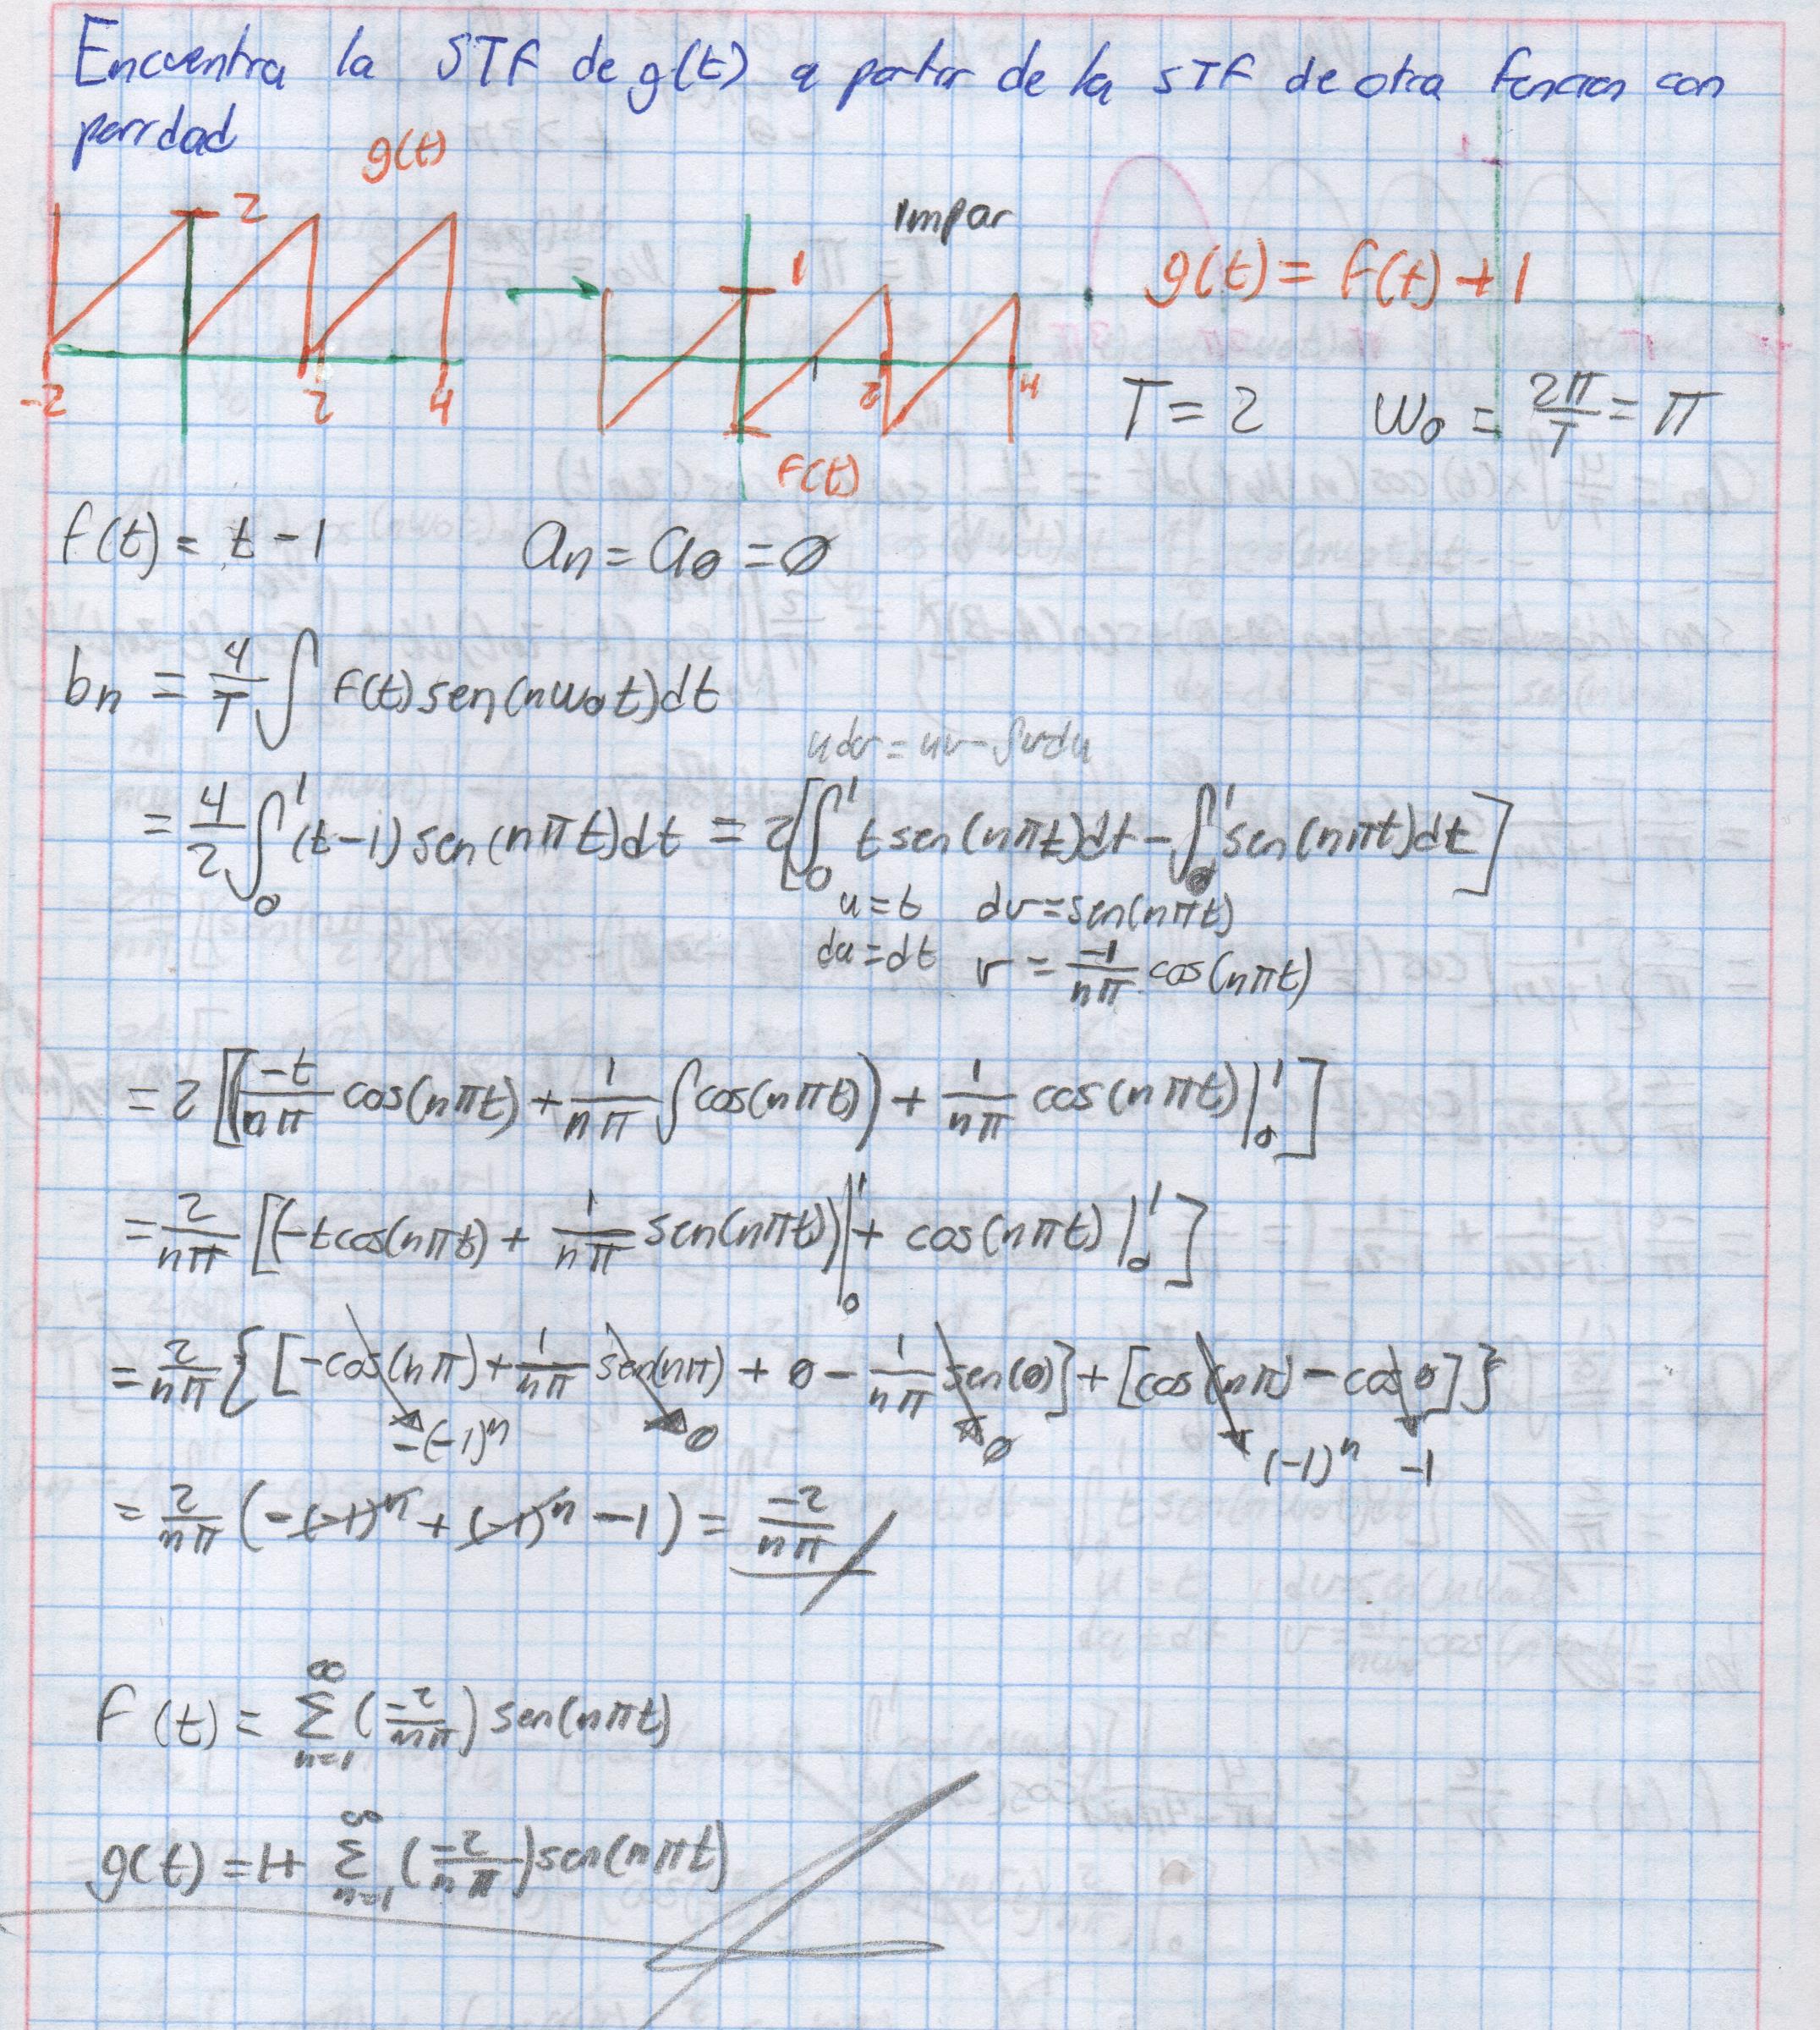 Encuentra la STF de g(t) a partir de la STF de otra funcion con
paridad
g(t)
2
-2 2 4
Impar
1
1 2 4
f(t)
g(t) = f(t) + 1
T = 2 w₀ = 2π/T = π
f(t) = t - 1 aₙ = a₀ = 0
bₙ = 4/T ∫ f(t) sen(nw₀t)dt
udv = uv - ∫vdu
= 4/2 ∫₀¹ (t-1) sen(nπt)dt = 2[∫₀¹ t sen(nπt)dt - ∫₀¹ sen(nπt)dt]
u = t dv = sen(nπt)
du = dt v = -1/nπ cos(nπt)
= 2[(-t/nπ cos(nπt) + 1/nπ ∫cos(nπt)) + 1/nπ cos(nπt)|₀¹]
= 2/nπ [(-t cos(nπt) + 1/nπ sen(nπt))|₀¹ + cos(nπt)|₀¹]
= 2/nπ {[-cos(nπ) + 1/nπ sen(nπ) + 0 - 1/nπ sen(0)] + [cos(nπ) - cos 0]}
-(-1)ⁿ 0 0 (-1)ⁿ -1
= 2/nπ (-(-1)ⁿ + (-1)ⁿ - 1) = -2/nπ
f(t) = ∞Σn=1 (-2/nπ) sen(nπt)
g(t) = 1+ ∞Σn=1 (-2/nπ) sen(nπt)